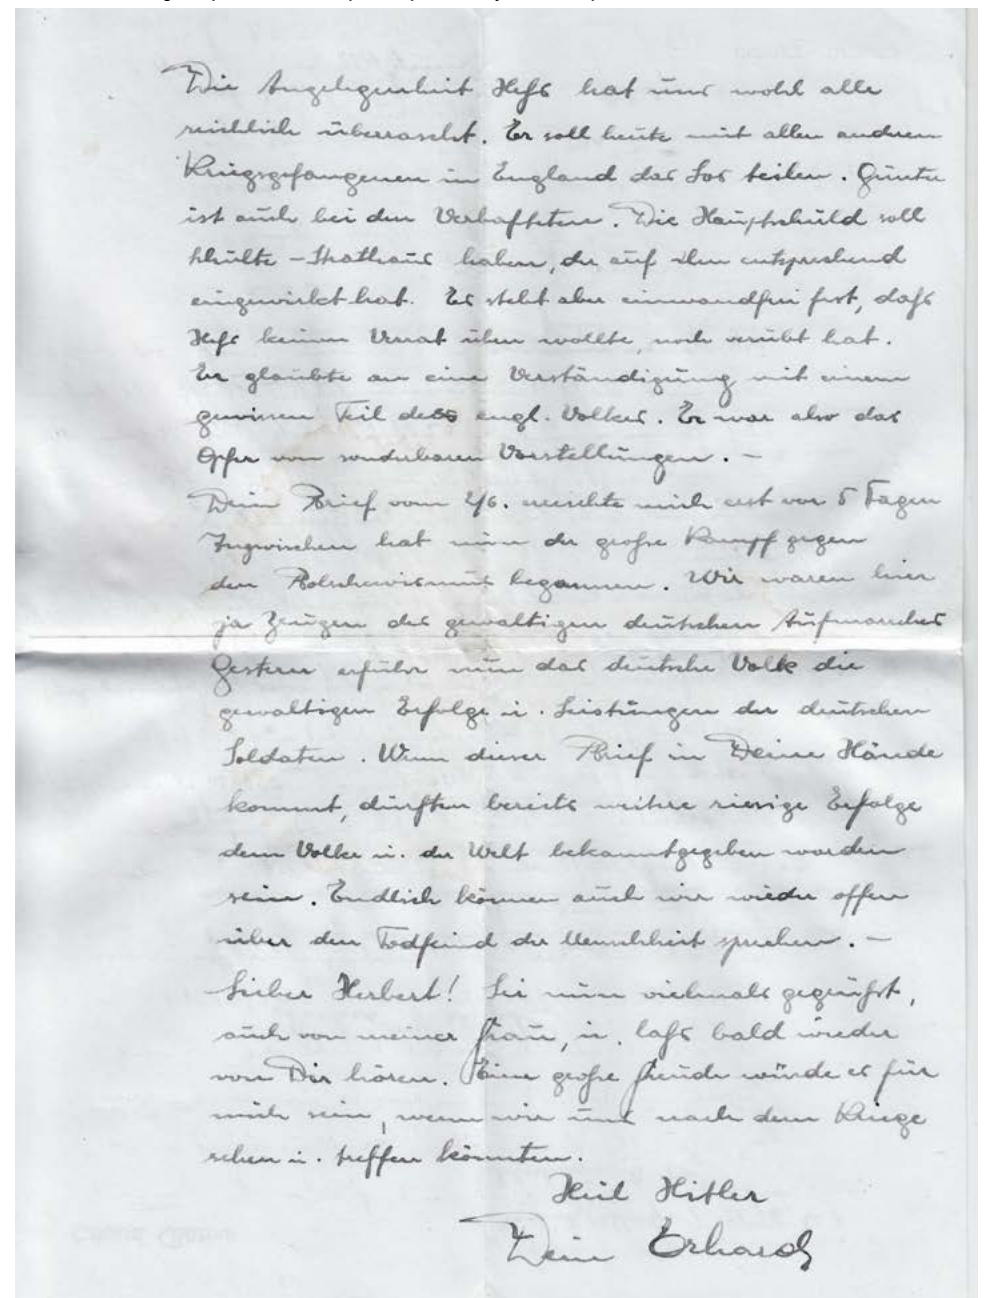 Die Angelegenheit Heß hat uns wohl alle
reichlich überrascht. Er soll heute mit allen anderen
Kriegsgefangenen in England das Los teilen. Günter
ist auch bei den Verhafteten. Die Hauptschuld soll
haben, der auf ihn entsprechend
eingewirkt hat. Es steht aber einwandfrei fest, daß
Heß keinen Verrat üben wollte, noch verübt hat.
Er glaubte an eine Verständigung mit einem
gewissen Teil des engl. Volkes. Er war also das
Opfer von sonderbaren Vorstellungen. –
Dein Brief vom 2/6. erreichte mich erst vor 5 Tagen
Inzwischen hat nun der große Kampf gegen
den Bolschewismus begonnen. Wir waren hier
ja Zeugen des gewaltigen deutschen Aufmarsches
Gestern erfuhr nun das deutsche Volk die
gewaltigen Erfolge u. Leistungen der deutschen
Soldaten. Wenn dieser Brief in Deine Hände
kommt, dürften bereits weitere riesige Erfolge
dem Volke u. der Welt bekanntgegeben worden
sein. Endlich können auch wir wieder offen
über den Todfeind der Menschheit sprechen. –
Lieber Herbert! Sei nun vielmals gegrüßt,
auch von meiner Frau, u. laß bald wieder
von Dir hören. Eine große Freude würde es für
mich sein, wenn wir uns nach dem Kriege
sehen u. treffen könnten.
Heil Hitler
Dein Erhard